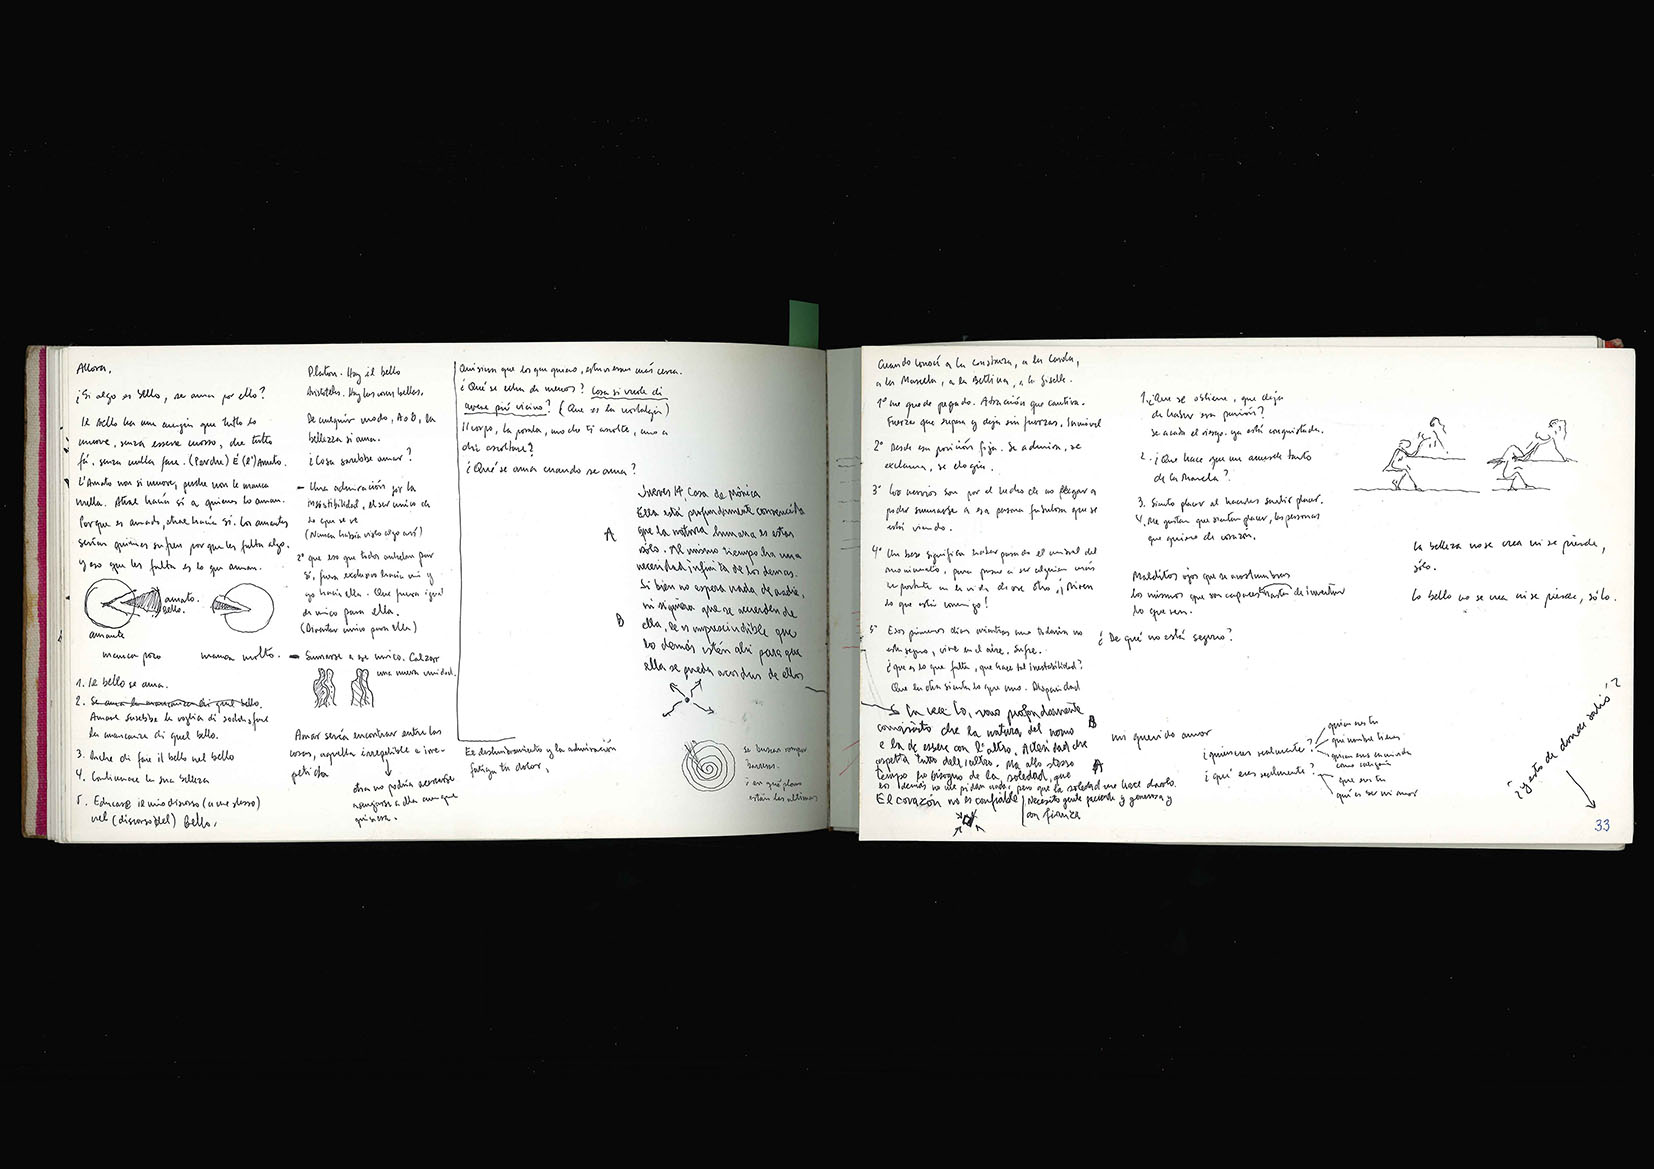 Allora,
¿Si algo es bello, se ama por ello?
Il bello ha una energia que tutto lo
muove, senza essere mosso, che tutto
fá, senza nulla fare. (Perche) É (l')Amato.
L'Amato non si muove, perche non le manca
nulla. Atrae hacia si a quienes lo aman.
Porque es amado, atrae hacia si. Los amantes
serían quienes sufren por que les falta algo.
y eso que les falta es lo que aman.
amato.
bello.
amante
manca poco
manca molto.
1. Il bello se ama.
2. Se ama la mancanza di quel bello.
Amare sarebbe la voglia di soddisfare
la mancanza di quel bello.
3. Anche di fare il bello nel bello
4. Continuare la sua bellezza
5. Educare il mio discorso (a me stesso)
nel (discorso del) Bello.
Platon. Hay il bello
Aristoteles. Hay las cosas bellas.
De cualquier modo, A o B, la
belleza si ama.
¿Cosa sarebbe amar?
- Una admiración por la
irresistibilidad, el ser unico de
lo que se ve
(Nunca había visto algo así)
2° que eso que todos anhelan para
sí, fuera exclusivo hacia mi y
yo hacia ella. Que fuera igual
de unico para ella.
(Deventer único para ella)
- Sumarse a se unico. Calzar
una nueva unidad.
Amar sería encontrar entre las
cosas, aquella irregelible e irre-
petida
otra no podría acercarse
a ella aunque
quisiera.
Quisiera que los que quiero, estuviesen más cerca.
¿Qué se echa de menos? Cosa si vuole di
avere più vicino? (Que es la nostalgia)
Il corpo, la parola, uno che ti ascolte, uno a
chi ascoltare?
¿Qué se ama cuando se ama?
Jueves 14 Casa de Mónica
Ella está profundamente convencida
A
que la natura humana es estar
sólo. Al mismo tiempo ha una
necesidad infinita de los demas.
Si bien no espera nada de nadie,
ni siquiera que se acuerden de
B
ella, le es imprescindible que
los demás estén ahi para que
ella se pueda acordar de ellos
El deslumbramiento y la admiración
fatiga tu dolor,
se buscan romper
barreras.
¿en qué plano
están las ultimas
Cuando conocí a la Constanza, a la Carola,
a la Marcela, a la Bettina, a la Giselle.
1° me quedo pegado. Atracción que cautiva.
Fuerza que supera y deja sin fuerzas. Inmóvil
2° Desde esa posición fija. Se admira, se
exclama, se elogia.
3° Los nervios son por el hecho de no llegar a
poder sumarse a esa persona fabulosa que se
está viendo.
4° Un beso significa haber pasado el umbral del
anonimato, para pasar a ser alguien más
importante en la vida de ese otro. ¡Miren
lo que está conmigo!
5° Esos primeros días mientras uno todavía no
está seguro, vive en el aire. Sufre.
¿que es lo que falta, que hace tal inestabilidad?
Que la otra sienta lo que uno. Disparidad
In vece Io, sono profondamente
B
convinto che la natura del uomo
e la de essere con l'altro. Así che
aspetta tutto dell'altro. Ma allo stesso
A
tempo ho bisogno de la soledad, que
los demás no me pidan nada, pero que la soledad me hace darlo.
El corazón no es confiable
Necesito gente paciente y generosa y
confianza
1. ¿Que se obtiene, que deja
de haber esa pasión?
se acaba el riesgo. ya está conquistada.
2. ¿Que hace que me acuerde tanto
de la Marcela?
3. Siento placer al hacerles sentir placer.
4. Me gustan que sientan placer, las personas
que quiero de corazón.
Malditos ojos que se acostumbran
los mismos que son capaces hasta de inventar
lo que ven.
¿De qué no está seguro?
mi querido amor
¿quien eres realmente?
quien eres tu
qué nombre tienes
quien eres enamorada
como cualquiera
¿qué eres realmente?
que eres tu
qué es ser mi amor
la belleza no se crea ni se pierde,
sólo.
lo bello no se crea ni se pierde, sólo.
¿y esto de donde salió?
33